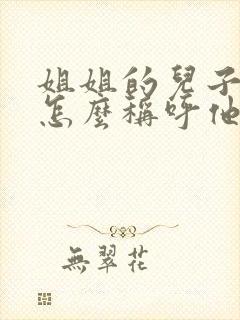 姐姐的兒子
怎麼稱呼他
無翠花